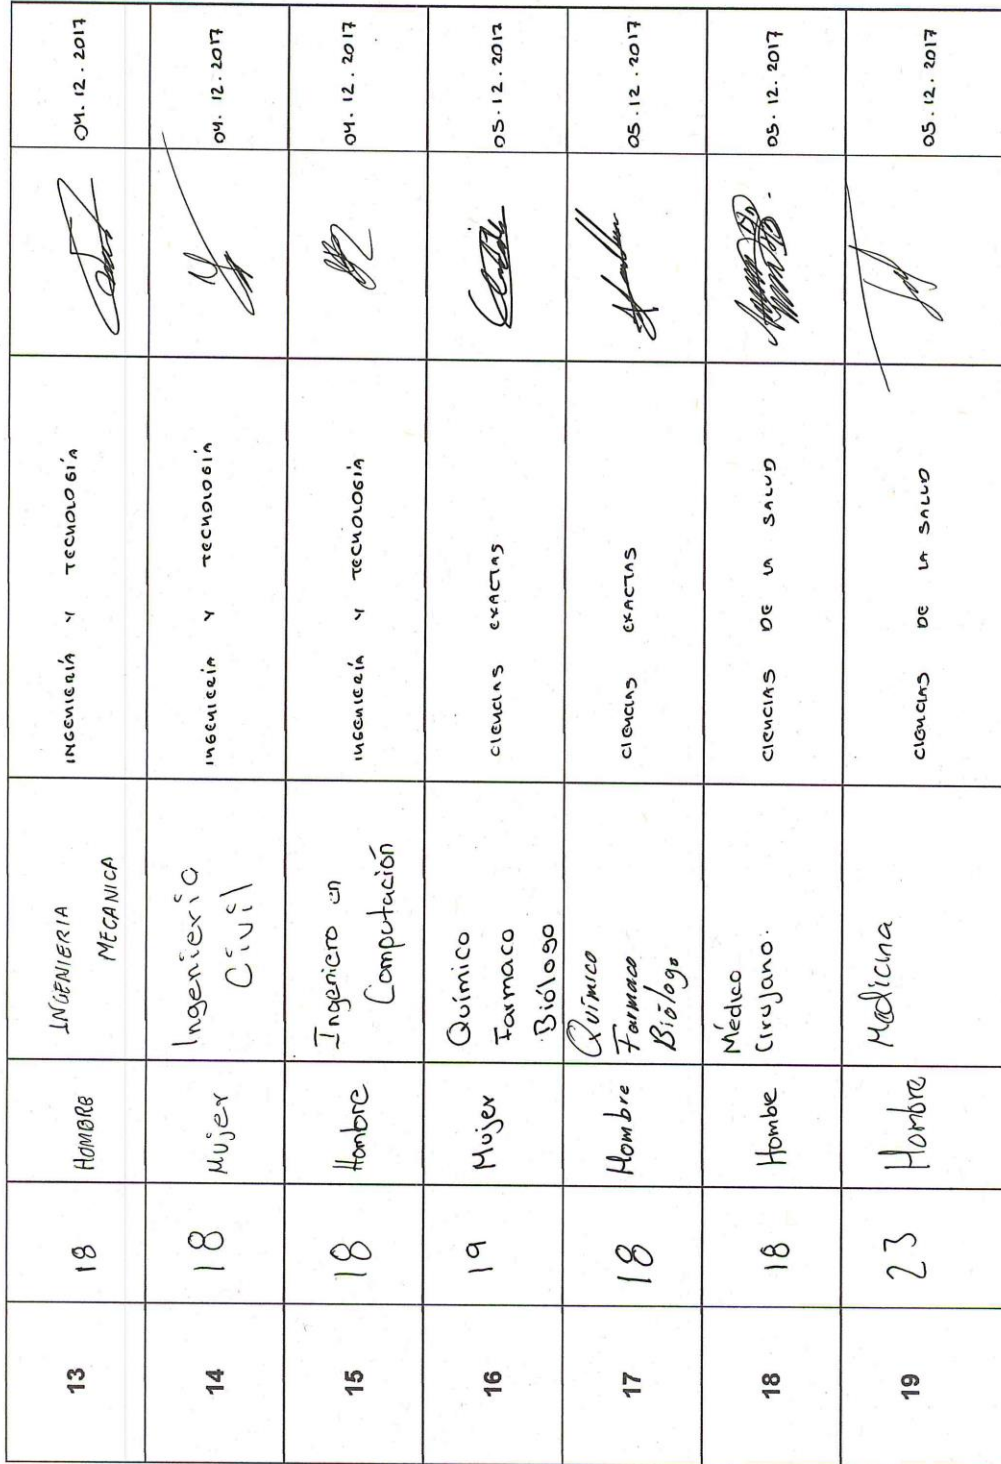 13 18 HOMBRE INGENIERIA MECANICA INGENIERÍA Y TECNOLOGÍA 04.12.2017
14 18 Mujer Ingeniería Civil INGENIERÍA Y TECNOLOGÍA 04.12.2017
15 18 Hombre Ingeniero en Computación INGENIERÍA Y TECNOLOGÍA 04.12.2017
16 19 Mujer Químico Farmaco Biólogo CIENCIAS EXACTAS 05.12.2017
17 18 Hombre Químico Farmaco Biólogo CIENCIAS EXACTAS 05.12.2017
18 18 Hombe Médico Cirujano. CIENCIAS DE LA SALUD 05.12.2017
19 23 Hombre Medicina CIENCIAS DE LA SALUD 05.12.2017